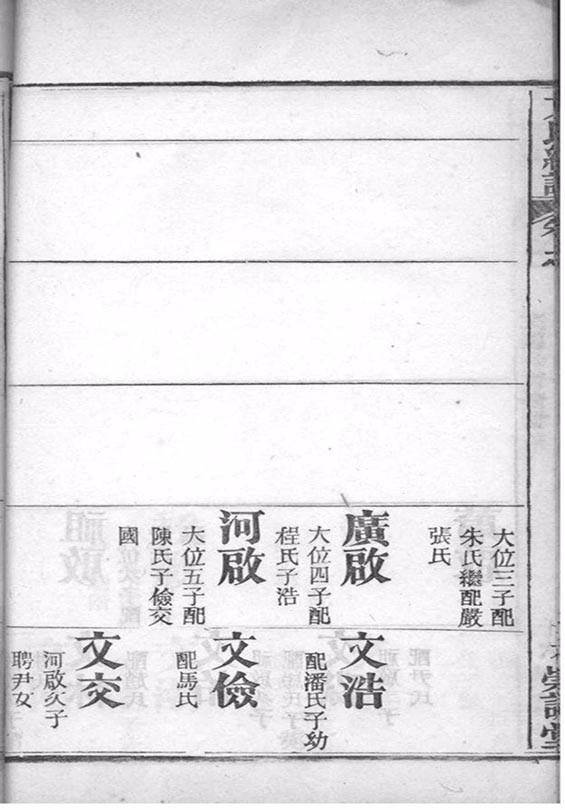 大位三子配
朱氏繼配嚴
張氏
廣啟
大位四子配
程氏子浩
河啟
大位五子配
陳氏子儉交
國
文浩
配潘氏子幼
文儉
配馬氏
文交
河啟次子
聘尹女